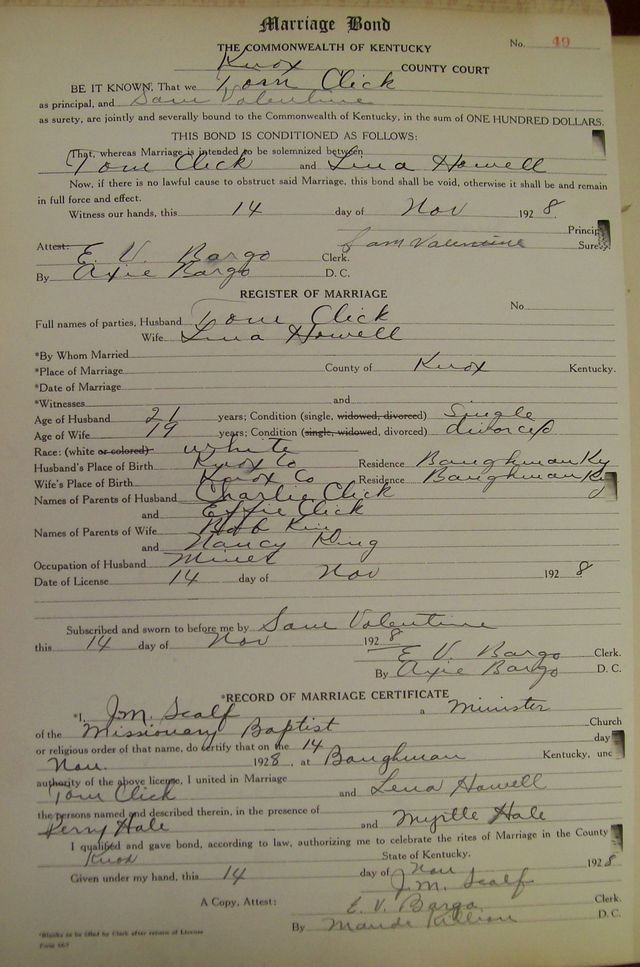 Marriage Bond
THE COMMONWEALTH OF KENTUCKY
No. 49
Knox COUNTY COURT
BE IT KNOWN, That we Tom Click
as principal, and Sam Valentine
as surety, are jointly and severally bound to the Commonwealth of Kentucky, in the sum of ONE HUNDRED DOLLARS.
THIS BOND IS CONDITIONED AS FOLLOWS:
That, whereas Marriage is intended to be solemnized between
Tom Click and Lina Howell
Now, if there is no lawful cause to obstruct said Marriage, this bond shall be void, otherwise it shall be and remain
in full force and effect.
Witness our hands, this 14 day of Nov 1928.
Princip
Sam Valentine Sure
Attest:
E. V. Bargo Clerk.
By Axie Bargo D. C.
REGISTER OF MARRIAGE
No
Full names of parties, Husband Tom Click
Wife Lina Howell
*By Whom Married
*Place of Marriage County of Knox Kentucky.
*Date of Marriage
*Witnesses and
Age of Husband 21 years; Condition (single, widowed, divorced) Single
Age of Wife 19 years; Condition (single, widowed, divorced) divorced
Race: (white or colored) white
Husband's Place of Birth Knox Co Residence Baughman Ky
Wife's Place of Birth Knox Co Residence Baughman Ky
Names of Parents of Husband Charlie Click
and Effie Click
Names of Parents of Wife Bob King
and Nancy King
Occupation of Husband Miner
Date of License 14 day of Nov 1928
Subscribed and sworn to before me by Sam Valentine
this 14 day of Nov 1928
E. V. Bargo Clerk.
By Axie Bargo D. C.
*RECORD OF MARRIAGE CERTIFICATE
*I, J.M. Scalf a Minister
of the Missionary Baptist Church
or religious order of that name, do certify that on the 14 day
Nov. 1928, at Baughman Kentucky, unc
authority of the above license, I united in Marriage
Tom Click and Lena Howell
the persons named and described therein, in the presence of
Perry Hale and Myrtle Hale
I qualified and gave bond, according to law, authorizing me to celebrate the rites of Marriage in the County
Knox State of Kentucky.
Given under my hand, this 14 day of Nov 1928
J.M. Scalf
A Copy, Attest: E. V. Bargo Clerk.
By Maude Killion D. C.
*Blanks to be filled by Clerk after return of License